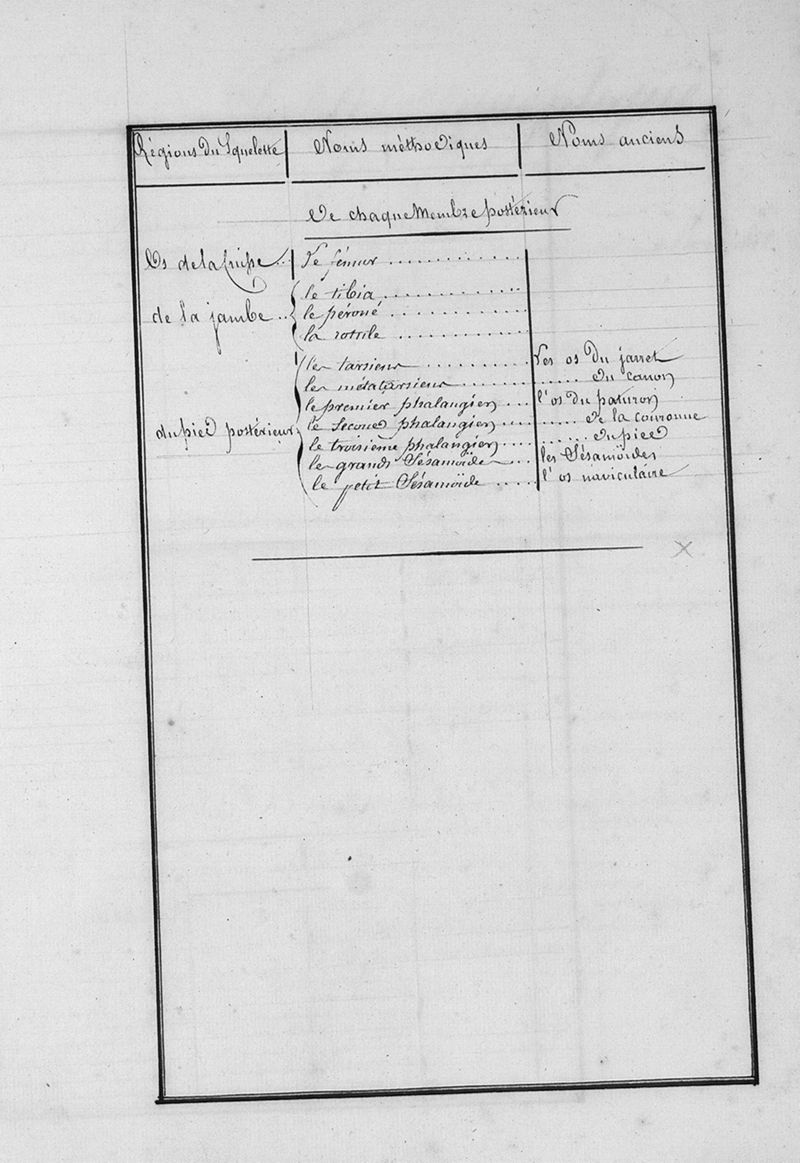 Régions du Squelette Noms méthodiques Noms anciens
De chaque Membre postérieur
Os de la Cuisse .. le fémur ............
le tibia ............
de la jambe .. le péroné ............
la rotule ............
les tarsiens ......... les os du jarret
les métatarsiens ......... du canon
le premier phalangien .... l'os du paturon
du pied postérieur le second phalangien ......... de la couronne
le troisième phalangien ......... du pied
les grands Sésamoïdes ... les Sésamoïdes
le petit Sésamoïde ..... l'os naviculaire